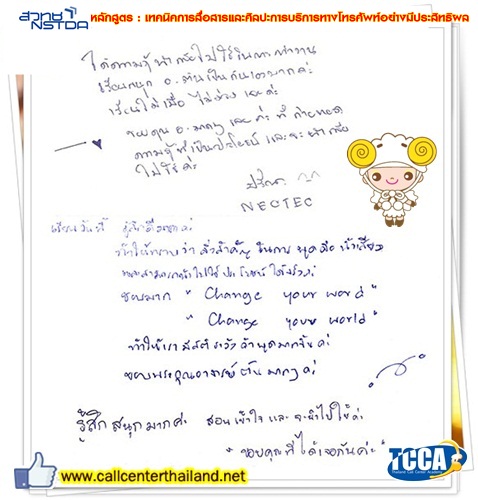 สวทช
NSTDA
หลักสูตร : เทคนิคการสื่อสารและศิลปะการบริการทางโทรศัพท์อย่างมีประสิทธิผล
ได้ความรู้ นำกลับไปใช้ในการทำงาน
เรียนสนุก อ.ต้นเป็นกันเองมากค่ะ
เรียนไม่เบื่อ ไม่ง่วง เลยค่ะ
ขอบคุณ อ. มากๆ เลย ค่ะ ที่ ถ่ายทอด
ความรู้ที่เป็นประโยชน์ และจะนำกลับ
ไปใช้ ค่ะ
NECTEC
เรียนวันนี้ รู้สึกดีมากค่ะ
ทำให้ทราบว่า สิ่งสำคัญ ในการ พูดคือ น้ำเสียง
และสามารถนำไปใช้ ประโยชน์ ได้จริงค่ะ
ชอบมาก " Change your word
" Change your world "
ทำให้เรา มีสติ ระวัง คำพูดมากขึ้น ค่ะ
ขอบพระคุณอาจารย์ต้น มากๆ ค่ะ
รู้สึก สนุก มากค่ะ สอนเข้าใจ และ จะนำไปใช้ค่ะ
" ขอบคุณที่ได้เจอกันค่ะ "
www.callcenterthailand.net
TCCA
Thailand Call Center Academy